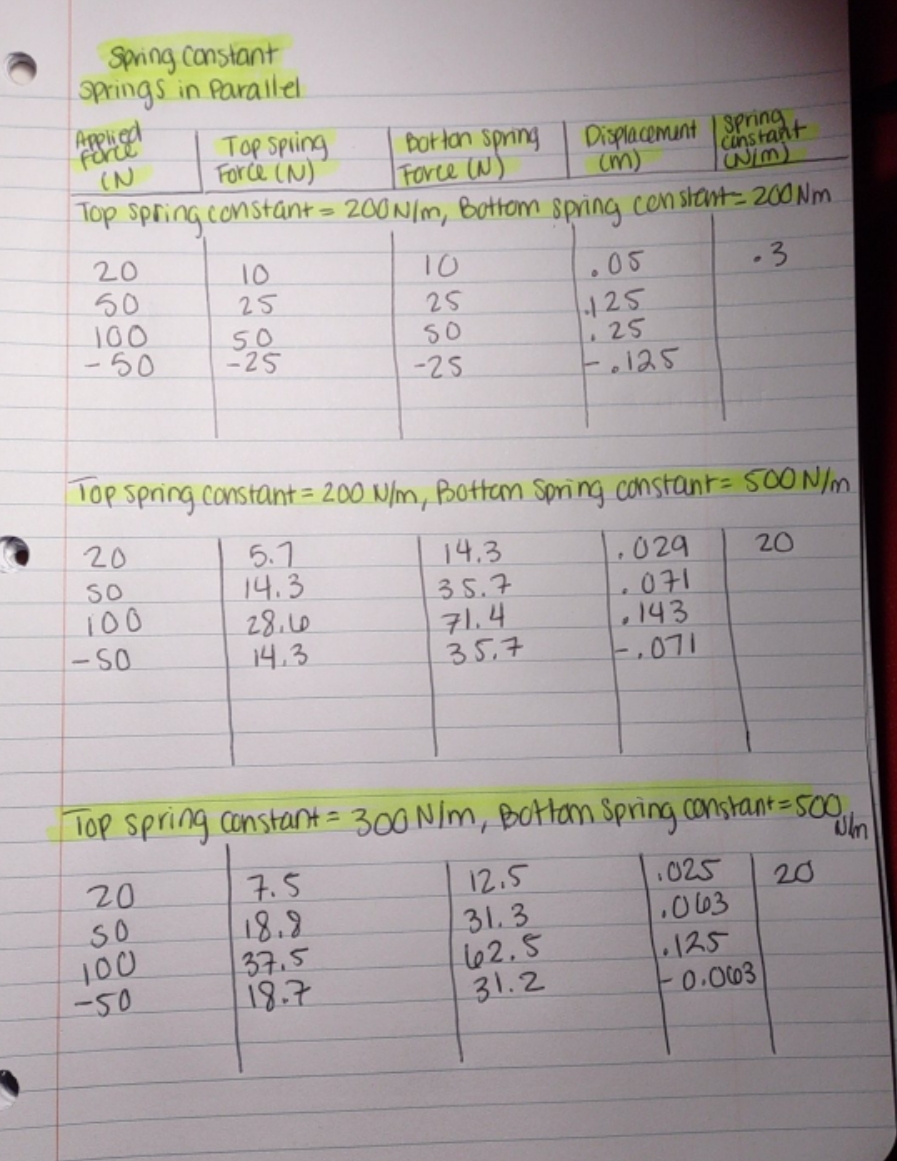 Spring Constant
Springs in Parallel
Applied Force (N | Top Spring Force (N) | Botton Spring Force (N) | Displacement (m) | Spring Constant (N/m)
Top spring constant = 200 N/m, Bottom spring constant = 200 Nm
20 10 10 .05 .3
50 25 25 .125
100 50 50 .25
-50 -25 -25 -.125
Top spring constant = 200 N/m, Bottom Spring constant = 500 N/m
20 5.7 14.3 .029 20
50 14.3 35.7 .071
100 28.6 71.4 .143
-50 14.3 35.7 -.071
Top spring constant = 300 N/m, Bottom Spring constant = 500 N/m
20 7.5 12.5 .025 20
50 18.8 31.3 .063
100 37.5 62.5 .125
-50 18.7 31.2 -0.063